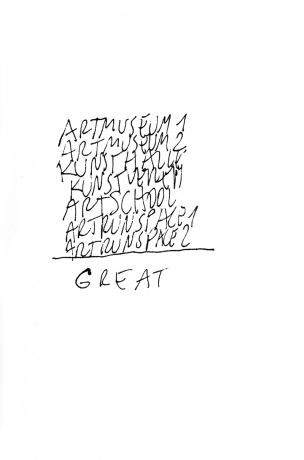 ARTMUSEUM 1
ARTMUSEUM 2
KUNSTHALLE
KUNSTVEREIN
ARTSCHOOL
ARTRUNSPACE 1
ARTRUNSPACE 2
GREAT